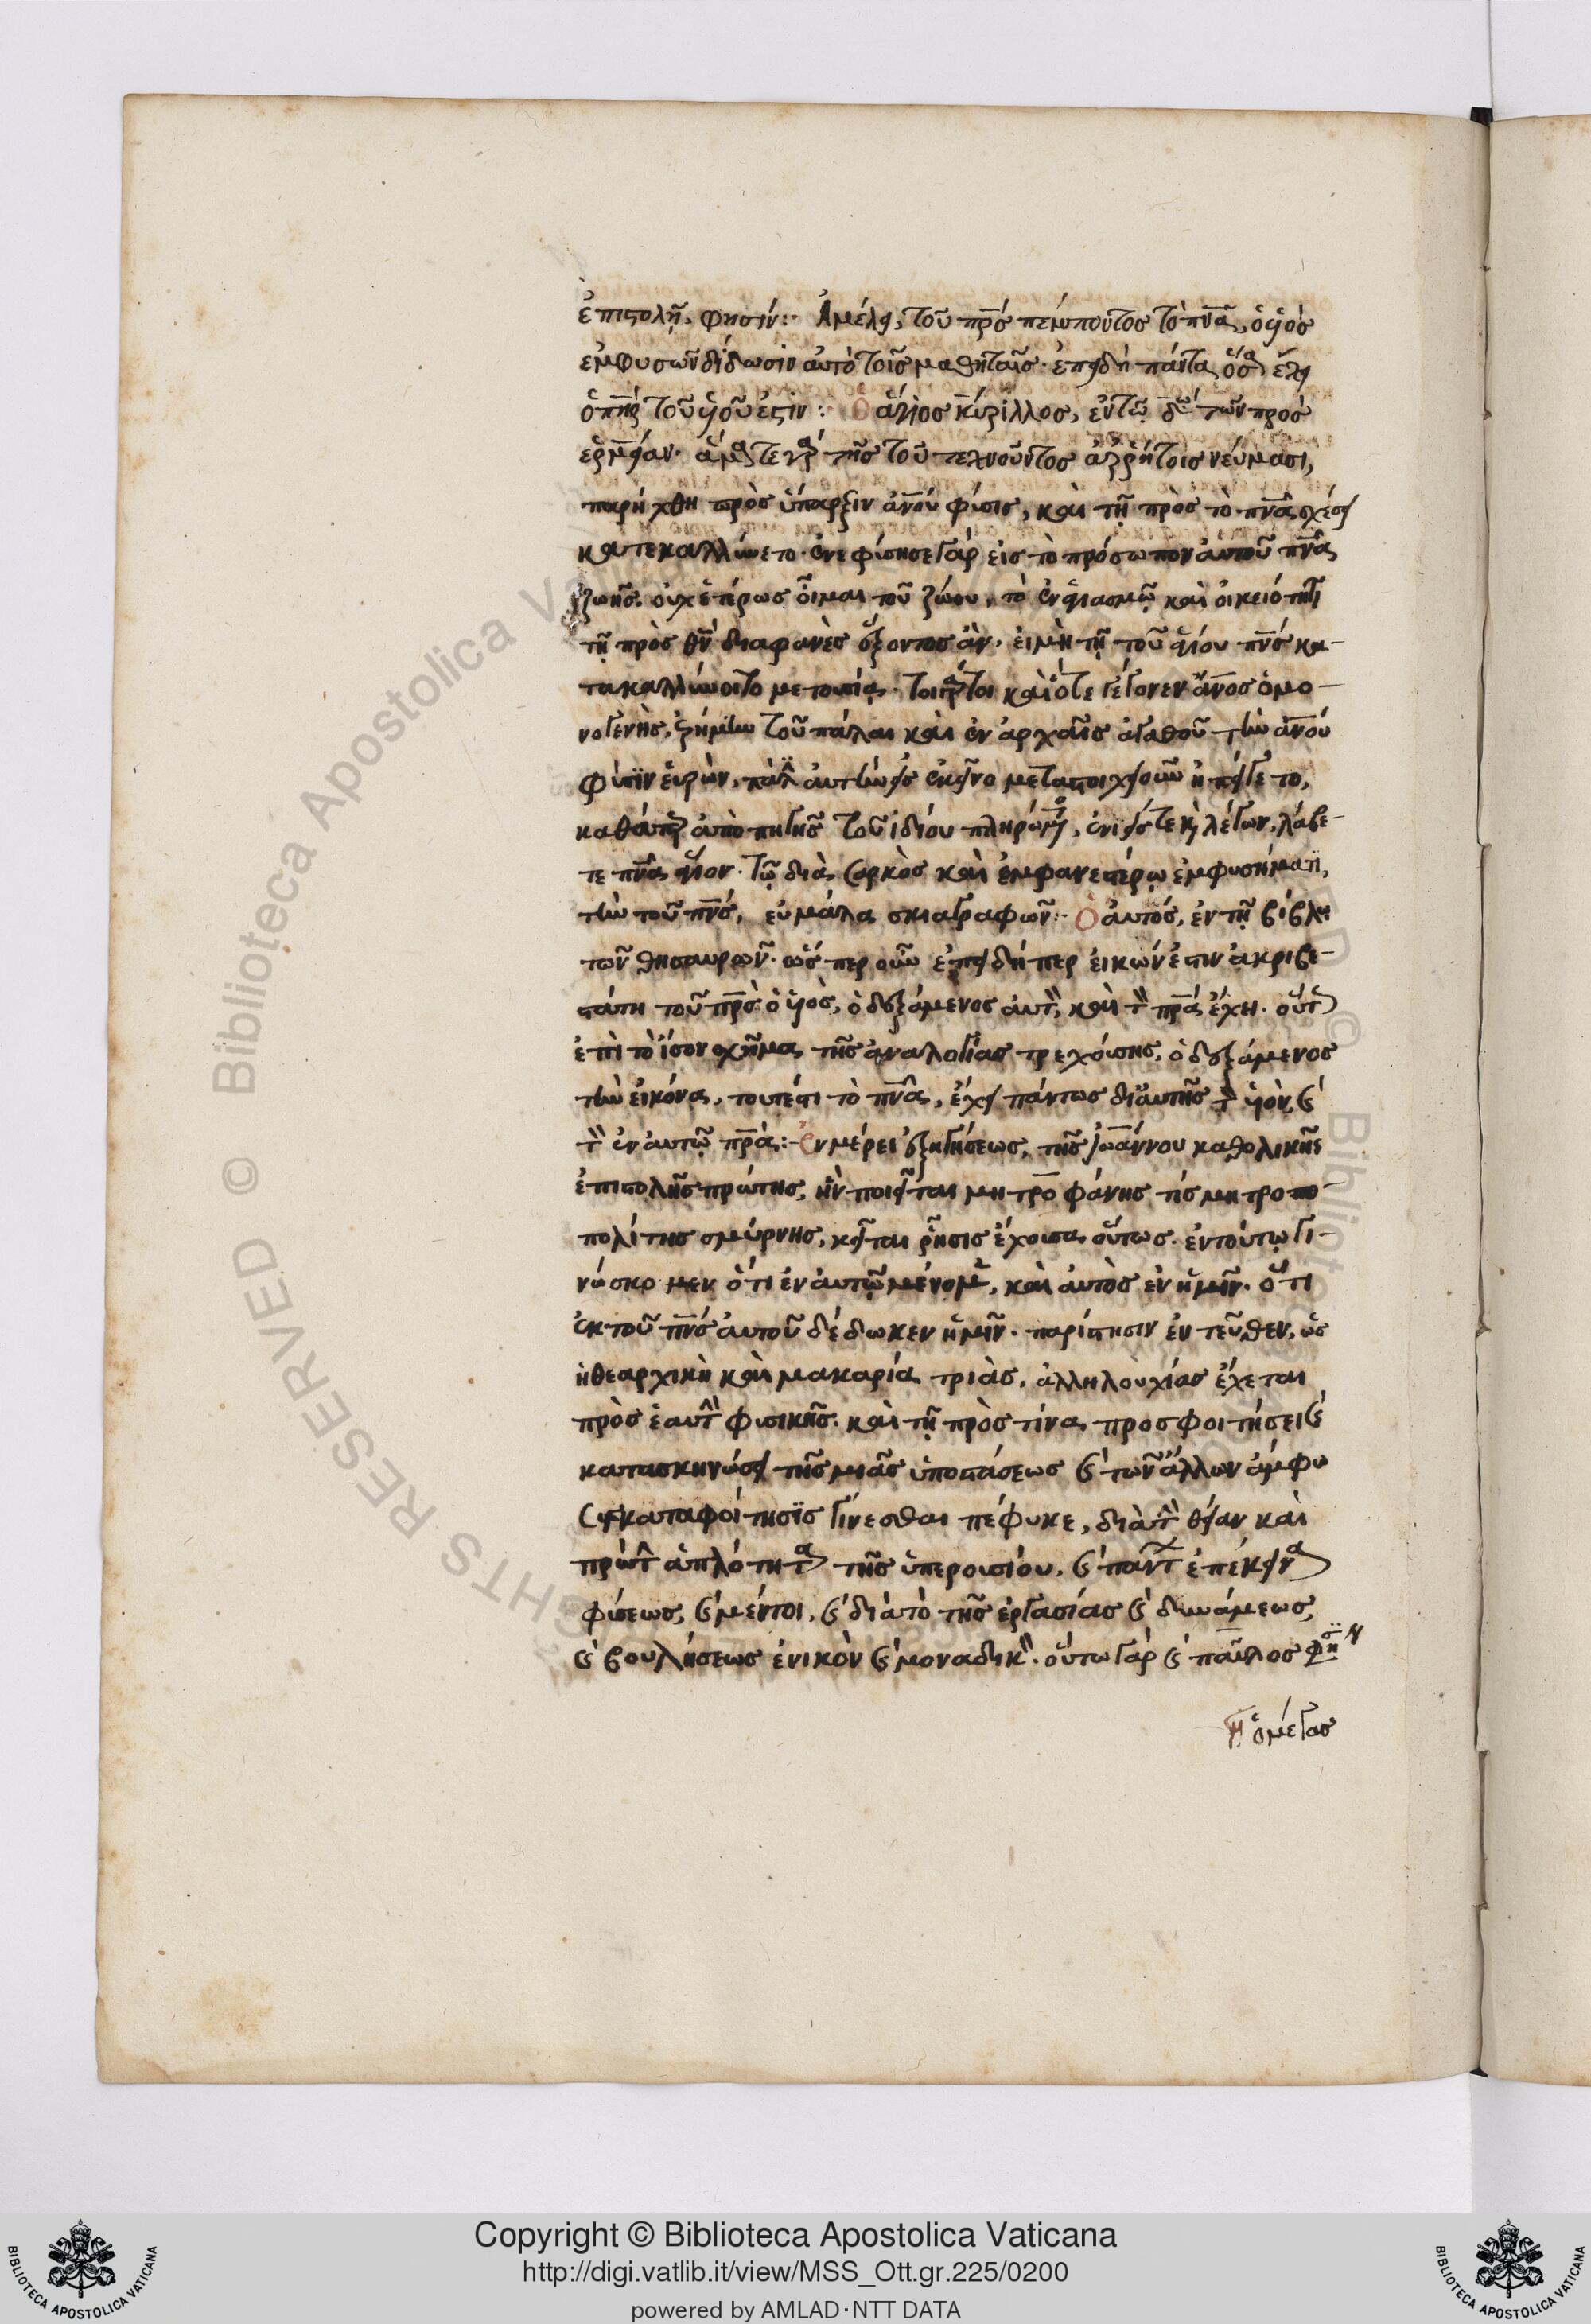 ἐπιστολῆ, φησίν:· Ἀμέλει, τοῦ πρς πέμποντος τὸ πνα, ὁ υἱὸς
ἐμφυσῶν δίδωσιν αὐτὸ τοῖς μαθηταῖς· ἐπειδὴ πάντα ὅσα ἔχει
ὁ πηρ τοῦ υἱοῦ ἐστιν:· Ὁ ἅγιος κύριλλος, ἐν τῶ τῶν πρὸς
ἑρμείαν· ἅμα τε γὰρ τῆς τοῦ τεχνοῦντος ἀρρήτοις νεύμασι,
παρήχθη πρὸς ὕπαρξιν ανου φύσις, καὶ τῆ πρὸς τὸ πνα σχέσει
κατεκαλλύνετο· ἐνεφύσησε γὰρ εἰς τὸ πρόσωπον αὐτοῦ πνα
ζωῆς. οὐχ ἑτέρως οἶμαι τοῦ ζώου, τὸ ἐν ἁγιασμῶ καὶ οἰκειότητι
τῆ πρὸς θν διαφανὲς ἕξοντος ἂν, εἰ μὴ τῆ τοῦ ἁγίου πνς κα-
τακαλλύνοιτο μετουσία. τοιγάρτοι καὶ ὅτε γέγονεν ανος ὁ μο-
νογενὴς, ἐρήμην τοῦ πάλαι καὶ ἐν ἀρχαῖς ἀγαθοῦ τὴν ανου
φύσιν εὑρὼν, πάλιν αὐτὴν εἰς ἐκεῖνο μεταστοιχειοῦν ἠπείγετο,
καθάπερ ἀπὸ πηγῆς τοῦ ἰδίου πληρώματος, ἐνιείς τε καὶ λέγων, λάβε-
τε πνα ἅγιον. τῶ διὰ σαρκὸς καὶ ἐμφανεστέρω ἐμφυσήματι,
τὴν τοῦ πνς, εὖ μάλα σκιαγραφῶν:· Ὁ αὐτός, ἐν τῆ βίβλω
τῶν θησαυρῶν. ὥσπερ οὖν ἐπειδήπερ εἰκών ἐστιν ἀκριβε-
στάτη τοῦ πρς ὁ υἱὸς, ὁ δεξάμενος αὐτὸν, καὶ τὸν πρα ἔχη. οὕτω
ἐπὶ τὸ ἴσον σχῆμα τῆς ἀναλογίας τρεχούσης, ὁ δεξάμενος
τὴν εἰκόνα, τουτέστι τὸ πνα, ἔχει πάντως δι' αὐτῆς τὸν υἱὸν, καὶ
τὸν ἐν αὐτῶ πρα:· Ἐν μέρει ἐξηγήσεως, τῆς ἰωάννου καθολικῆς
ἐπιστολῆς πρώτης, ἣν ποιεῖται μητροφάνης τίς μητροπο-
πολίτης σμύρνης, κεῖται ῥῆσις ἔχουσα οὕτως. ἐν τούτω γι-
νώσκομεν ὅτι ἐν αὐτῶ μένομεν, καὶ αὐτὸς ἐν ἡμῖν. ὅτι
ἐκ τοῦ πνς αὐτοῦ δέδωκεν ἡμῖν. παρίστησιν ἐντεῦθεν, ὡς
ἡ θεαρχικὴ καὶ μακαρία τριὰς, ἀλληλουχίας ἔχεται
πρὸς ἑαυτὴν φυσικῆς. καὶ τῆ πρὸς τίνα προσφοιτήσει καὶ
κατασκηνώσει τῆς μιᾶς ὑποστάσεως καὶ τῶν ἄλλων ἄμφω
συγκαταφοίτησις γίνεσθαι πέφυκε, διὰ τὴν θείαν καὶ
πρώτην ἁπλότητα τῆς ὑπερουσίου, καὶ πάντων ἐπέκεινα
φύσεως, καὶ μέντοι, καὶ διὰ τὸ τῆς ἐργασίας καὶ δυνάμεως,
καὶ βουλήσεως ἑνικὸν καὶ μοναδικὸν. οὕτω γὰρ καὶ παῦλος φησὶν
ὁ μέγας